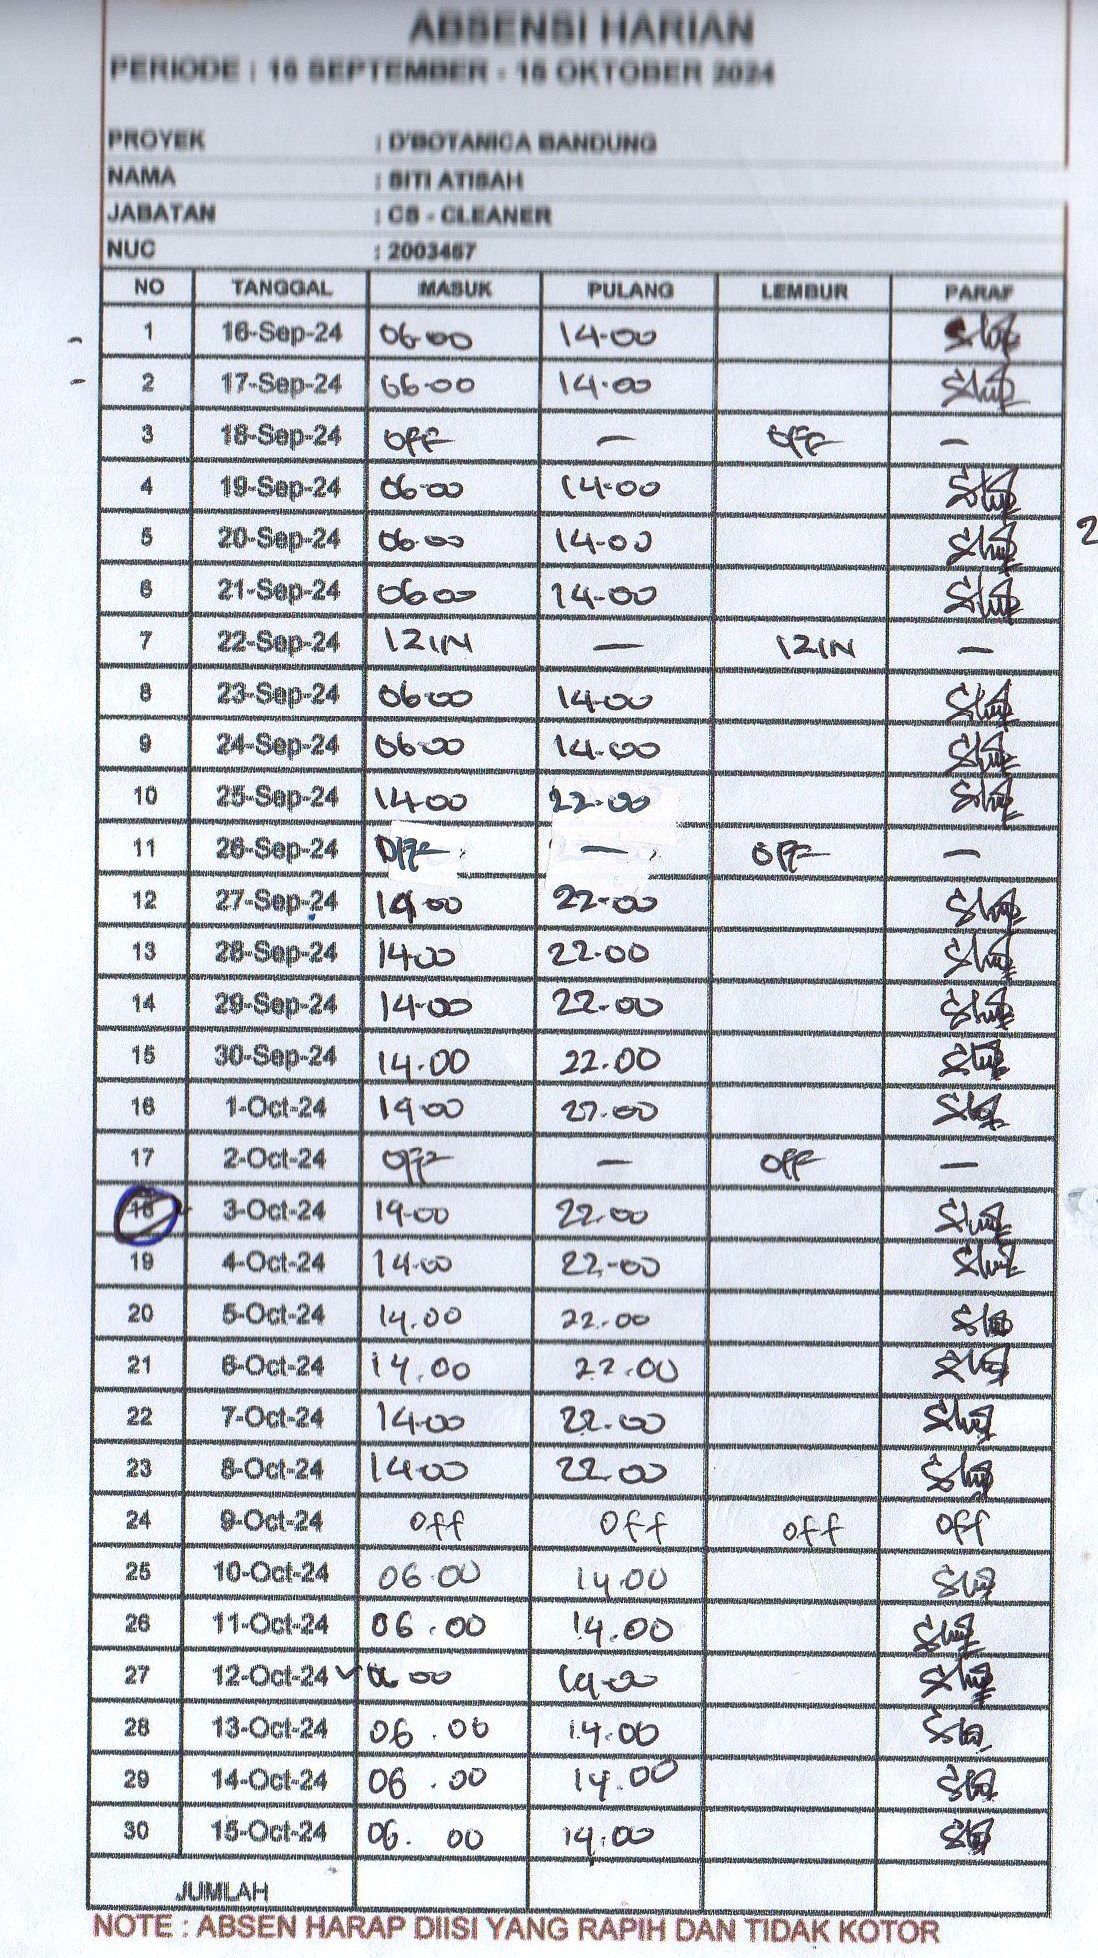 ABSENSI HARIAN
PERIODE : 16 SEPTEMBER - 15 OKTOBER 2024
PROYEK : D'BOTANICA BANDUNG
NAMA : SITI ATISAH
JABATAN : CS - CLEANER
NUC : 2003467
NO TANGGAL MASUK PULANG LEMBUR PARAF
1 16-Sep-24 06-00 14-00
2 17-Sep-24 06-00 14-00
3 18-Sep-24 OFF — OFF —
4 19-Sep-24 06-00 14-00
5 20-Sep-24 06-00 14-00 2
6 21-Sep-24 06-00 14-00
7 22-Sep-24 IZIN — IZIN —
8 23-Sep-24 06-00 14-00
9 24-Sep-24 06-00 14-00
10 25-Sep-24 14-00 22-00
11 26-Sep-24 OFF — OFF —
12 27-Sep-24 14-00 22-00
13 28-Sep-24 14-00 22.00
14 29-Sep-24 14-00 22-00
15 30-Sep-24 14.00 22.00
16 1-Oct-24 14-00 22-00
17 2-Oct-24 OFF — OFF —
18 3-Oct-24 14-00 22.00
19 4-Oct-24 14-00 22-00
20 5-Oct-24 14.00 22.00
21 6-Oct-24 14.00 22.00
22 7-Oct-24 14-00 22.00
23 8-Oct-24 14-00 22.00
24 9-Oct-24 off off off off
25 10-Oct-24 06.00 14.00
26 11-Oct-24 06.00 14.00
27 12-Oct-24 06.00 14-00
28 13-Oct-24 06.00 14.00
29 14-Oct-24 06.00 14.00
30 15-Oct-24 06.00 14.00
JUMLAH
NOTE : ABSEN HARAP DIISI YANG RAPIH DAN TIDAK KOTOR